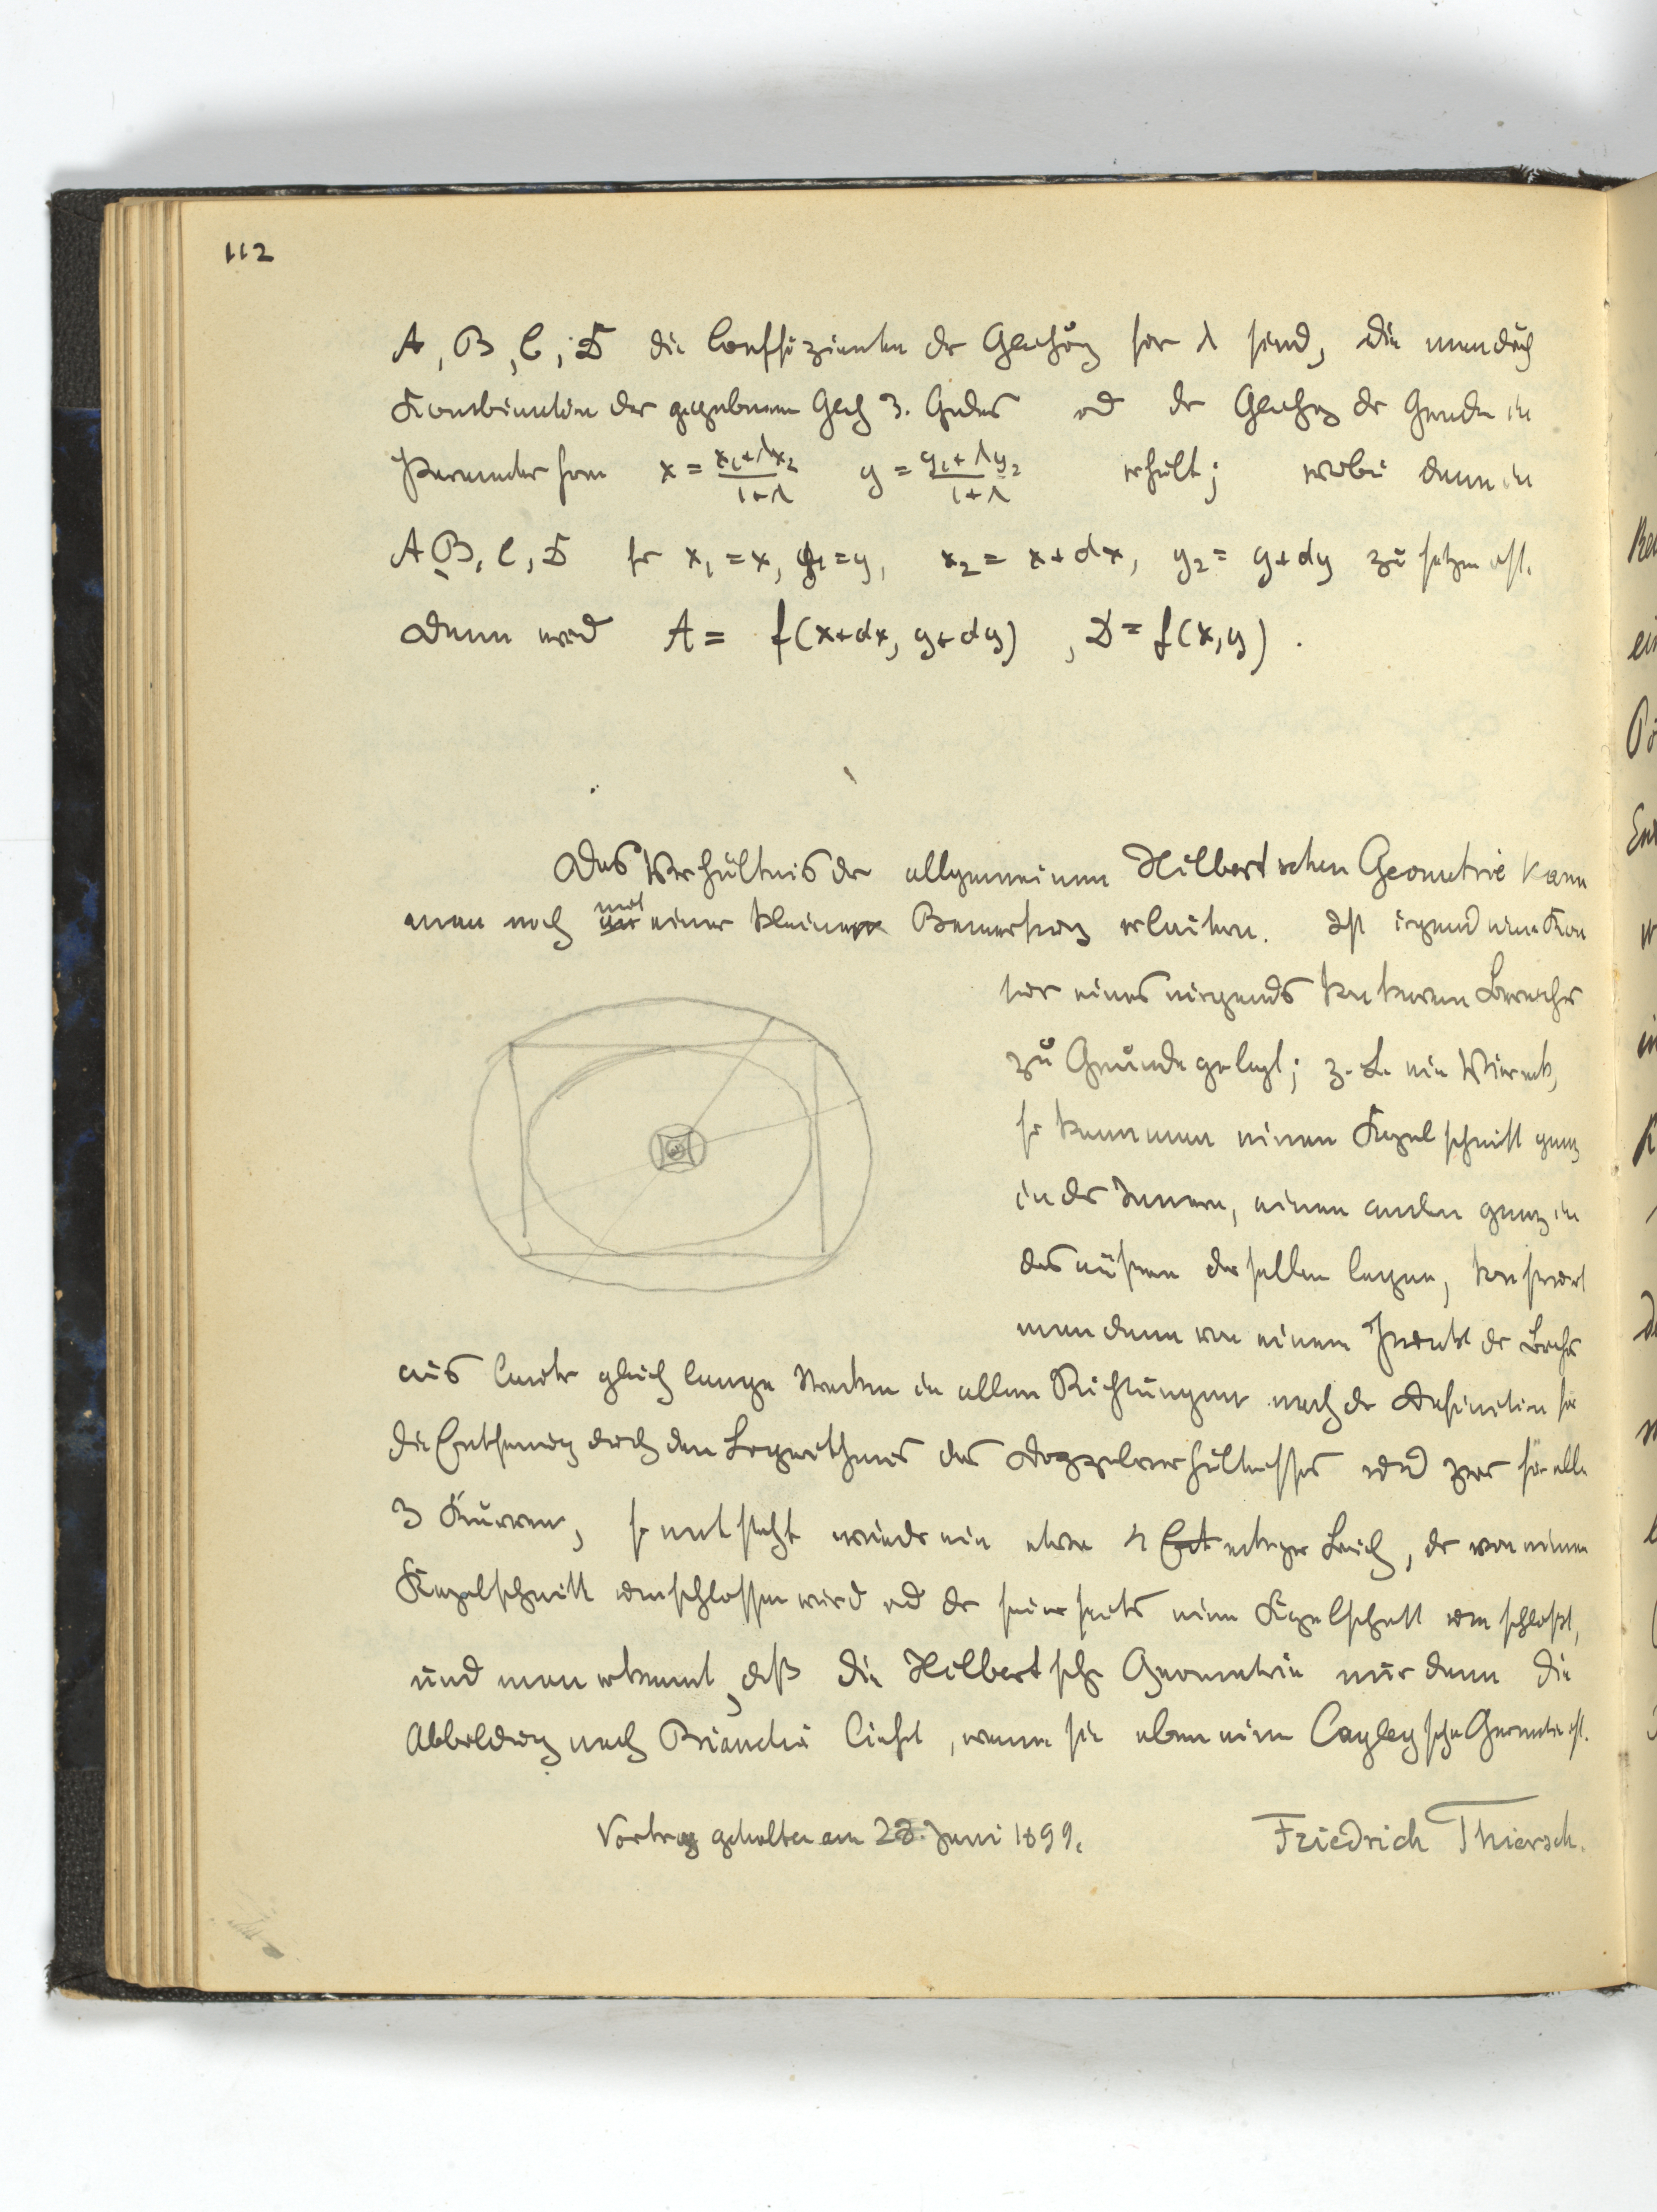 112
A, B, C, D die Coeffizienten der Glchung für λ sind, die man durch
Kombination der gegebenen Glch 3. Grades und der Glchg der Geraden in
Parameterform x = (x₁+λx₂)/(1+λ) y = (y₁+λy₂)/(1+λ) erhält; wobei dann in
A B, C, D für x₁ = x, y₁ = y, x₂ = x+dx, y₂ = y+dy zu setzen ist.
Dann wird A = f(x+dx, y+dy) , D = f(x,y) .
Das Verhältnis der allgemeinen Hilbertschen Geometrie kann
man noch mit einer kleinen Bemerkung erläutern. Ist irgend eine Kon
tur eines nirgends konkaven Bereiches
zu Grunde gelegt; z. B. ein Viereck,
so kann man einen Kegelschnitt ganz
in das Innere, einen andern ganz in
das äußere desselben legen, konstruiert
man dann von einem Punkt des Bereichs
aus lauter gleich lange Strecken in allen Richtungen nach der Definition für
die Entfernung durch den Logarithmus des Doppelverhältnisses und zwar für alle
3 Kurven, so entsteht wieder ein etwa 4 eckiger Bereich, der von einem
Kegelschnitt umschlossen wird und der seinerseits einen Kegelschnitt umschließt,
und man erkennt, daß die Hilbertsche Geometrie nur dann die
Abbildung nach Bianchi liefert, wenn sie eben eine Cayleysche Geometrie ist.
Vortrag gehalten am 28. Juni 1899.
Friedrich Thiersch.